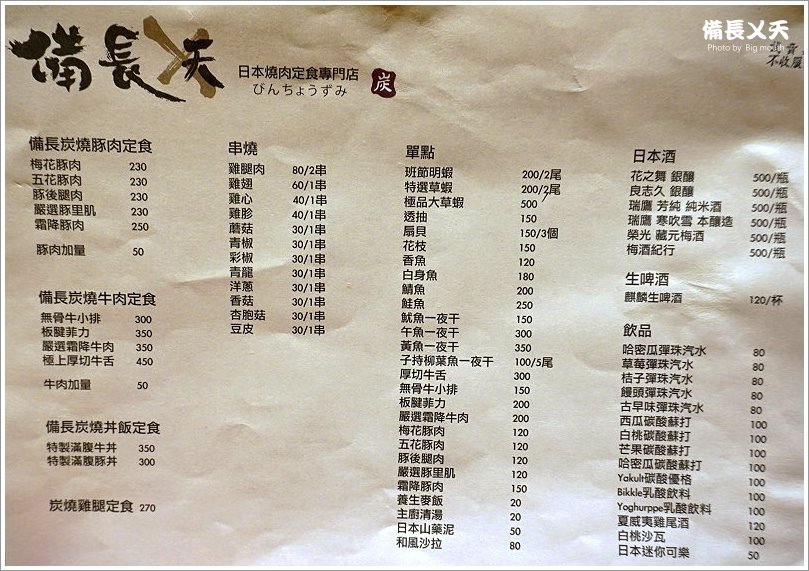 備長乂天
Photo by Big mouth
不收服
備長乂天
日本燒肉定食專門店
びんちょうずみ
炭
備長炭燒豚肉定食
梅花豚肉 230
五花豚肉 230
豚後腿肉 230
嚴選豚里肌 230
霜降豚肉 250
豚肉加量 50
備長炭燒牛肉定食
無骨牛小排 300
板腱菲力 350
嚴選霜降牛肉 350
極上厚切牛舌 450
牛肉加量 50
備長炭燒丼飯定食
特製滿腹牛丼 350
特製滿腹豚丼 300
炭燒雞腿定食 270
串燒
雞腿肉 80/2串
雞翅 60/1串
雞心 40/1串
雞胗 40/1串
蘑菇 30/1串
青椒 30/1串
彩椒 30/1串
青龍 30/1串
洋蔥 30/1串
香菇 30/1串
杏胞菇 30/1串
豆皮 30/1串
單點
班節明蝦 200/2尾
特選草蝦 200/2尾
極品大草蝦 500
透抽 150
扇貝 150/3個
花枝 150
香魚 120
白身魚 180
鯖魚 200
鮭魚 250
魷魚一夜干 150
午魚一夜干 300
黃魚一夜干 350
子持柳葉魚一夜干 100/5尾
厚切牛舌 300
無骨牛小排 150
板腱菲力 200
嚴選霜降牛肉 200
梅花豚肉 120
五花豚肉 120
豚後腿肉 120
嚴選豚里肌 120
霜降豚肉 150
養生麥飯 20
主廚清湯 20
日本山藥泥 50
和風沙拉 80
日本酒
花之舞 銀釀 500/瓶
良志久 銀釀 500/瓶
瑞鷹 芳純 純米酒 500/瓶
瑞鷹 寒吹雪 本釀造 500/瓶
榮光 藏元梅酒 500/瓶
梅酒紀行 500/瓶
生啤酒
麒麟生啤酒 120/杯
飲品
哈密瓜彈珠汽水 80
草莓彈珠汽水 80
桔子彈珠汽水 80
饅頭彈珠汽水 80
古早味彈珠汽水 80
西瓜碳酸蘇打 100
白桃碳酸蘇打 100
芒果碳酸蘇打 100
哈密瓜碳酸蘇打 100
Yakult碳酸優格 100
Bikkle乳酸飲料 100
Yoghurppe乳酸飲料 100
夏威夷雞尾酒 120
白桃沙瓦 100
日本迷你可樂 50